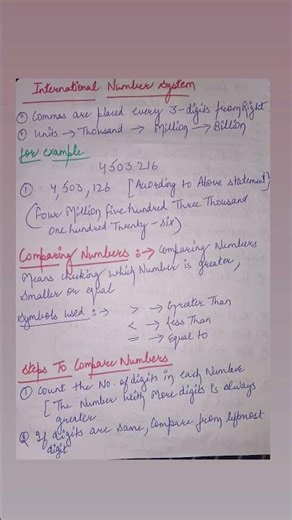 International Number System
① Commas are placed every 3-digits from Right
② Units → Thousand → Million → Billion
for example
4503216
① 4,503,126 [According to Above statement]
(Four Million five hundred Three Thousand
one hundred Twenty-six)
Comparing Numbers :→ Comparing Numbers
Means checking which Number is greater,
smaller or equal
Symbols used :→ > → Greater Than
< → Less Than
= → Equal to
Steps To Compare Numbers
① Count the No. of digits in each Number
[The Number with More digits is always
greater
② If digits are same, Compare from leftmost
digit